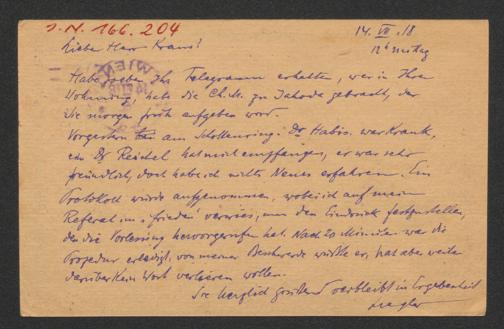 J.N. 166.204
14. VII. 18
12h mittag
Liebe Herr Kraus!
WIEN
Habe soeben Ihr Telegramm erhalten, war in Ihre
Wohnung, habe die Ch. M. zu Jahoda gebracht, der
sie morgen früh aufgeben wird.
Vorgestern am Schottenring: Dr Habis. war krank,
ein Dr Reichel hat mich empfangen, er war sehr
freundlich, doch habe ich nichts Neues erfahren. Ein
Protokoll wurde aufgenommen, wobei ich auf mein
Referat im "Frieden" verwies, um den Eindruck festzustellen,
den die Vorlesung hervorgerufen hat. Nach 20 Minuten war die
Prozedur erledigt, von meiner Beschwerde wußte er, hat aber weiter
darüber kein Wort verlieren wollen.
Sie herzlich grüßend verbleibt in Ergebenheit